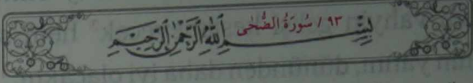 ٩٣ / سُورَةُ الضُّحٰى
بِسْمِ اللّٰهِ الرَّحْمٰنِ الرَّحِيْمِ